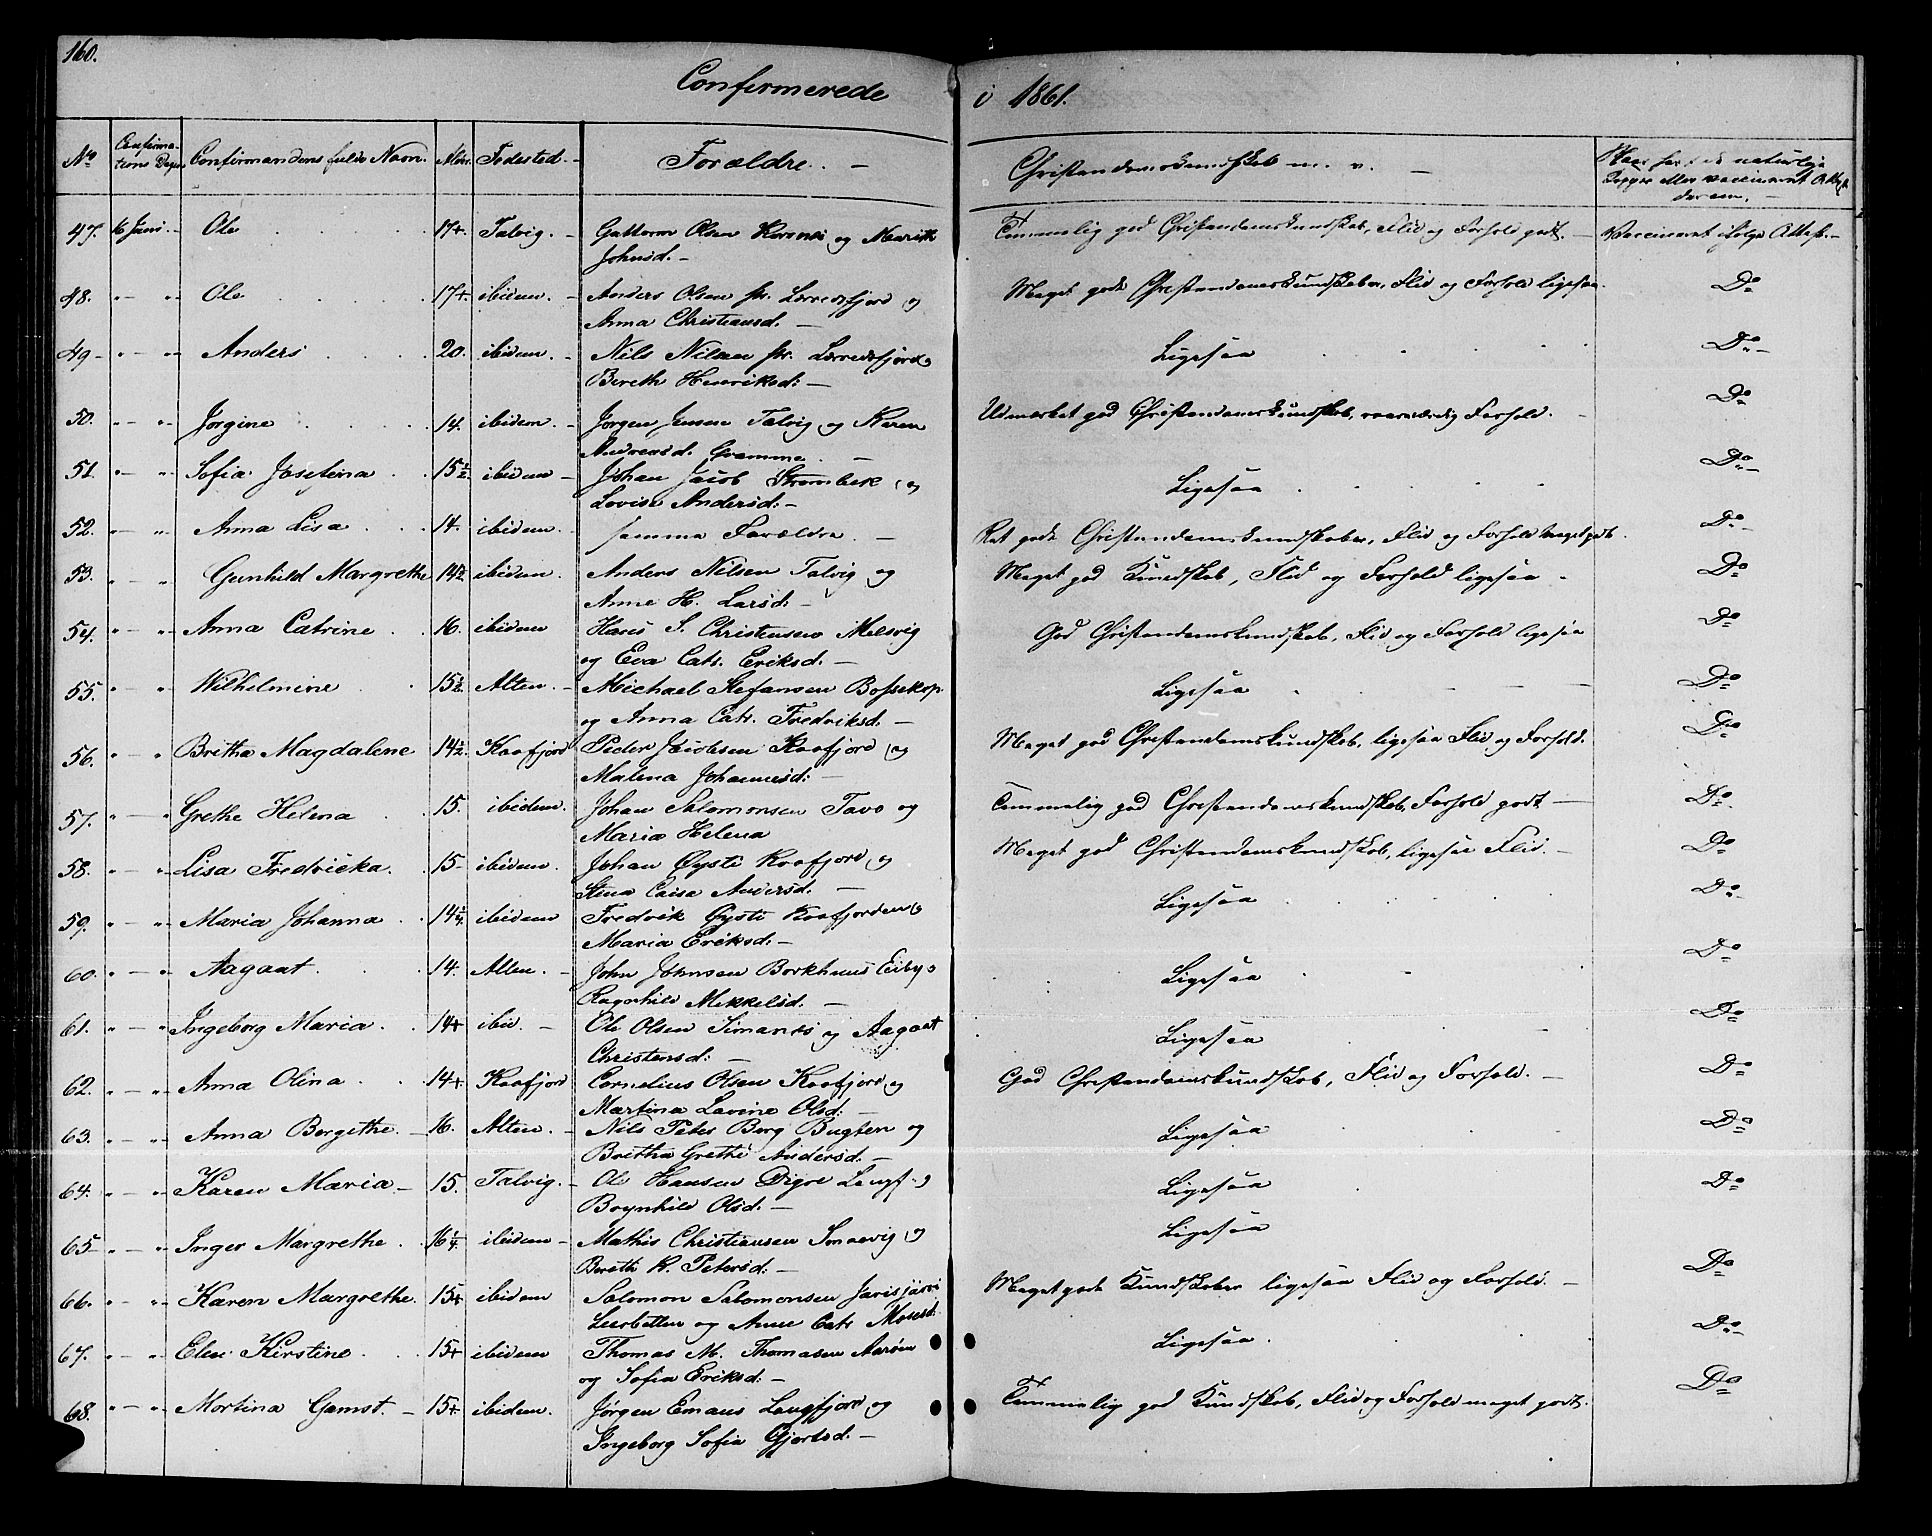 160.
Confirmerede i 1861.
No Confirma- Confirmandens fulde Navn. Alder. Fødested. Forældre. Christendomskundskab m. v. Naar havt de naturlige
tions Dagen Kopper eller vaccineret Attest
derom.
47. 16 Juni. Ole 17+ Talvig. Guttorm Olsen Korsnes og Marith Temmelig god Christendomskundskab, Flid og Forhold godt. Vaccineret ifølge Attest.
Johnsd.
48. " " Ole 17+ ibidem. Anders Olsen str. Lerredsfjord og Meget gode Christendomskundskaber, Flid og Forhold ligesaa. Do
Anna Christiansd.
49. " " Anders 20. ibidem. Nils Nilsen str. Lerredsfjord og Ligesaa Do
Bereth Henriksd:
50. " " Jørgine 14. ibidem. Jørgen Jensen Talvig og Karen Udmærket god Christendomskundskab, roesværdig Forhold. Do
Andreasd. Gramme.
51. " " Sofia Josefina 15½ ibidem Johan Jacob Strømbek og Ligesaa Do
Lovise Andersd.
52. " " Anna Lisa 14. ibidem. samme Forældre. Ret gode Christendomskundskaber, Flid og Forhold meget godt. Do
53. " " Gunhild Margrethe 14½ ibidem. Anders Nilsen Talvig og Meget god Kundskab, Flid og Forhold ligesaa Do
Anne H. Larsd:
54. " " Anna Catrine 16. ibidem Hans S. Christensen Melsvig God Christendomskundskab, Flid og Forhold ligesaa Do
og Eva Catr. Eriksd.
55. " " Wilhelmine 15½ Alten. Michael Stefansen Bossekop Ligesaa Do
og Anna Catr. Fredriksd.
56. " " Britha Magdalene 14½ Kaafjord Peder Jacobsen Kaafjord og Meget god Christendomskundskab, ligesaa Flid og Forhold. Do
Malena Johannesd:
57. " " Grethe Helena 15. ibidem. Johan Salomonsen Tavo og Temmelig god Christendomskundskab, Forhold godt Do
Maria Helena
58. " " Lisa Fredricka. 15 ibidem. Johan Øysti Kaafjord og Meget god Christendomskundskab, ligesaa Flid. Do
Stina Caisa Andersd.
59. " " Maria Johanna 14¼ ibidem Fredrik Øysti Kaafjorden og Ligesaa Do
Maria Eriksd.
60. " " Aagaat. 14. Alten. John Johnsen Borkhuus Eiby og Ligesaa Do
Ragnhild Mikkelsd.
61. " " Ingeborg Maria. 14+ ibid. Ole Olsen Simanes og Aagaat Ligesaa Do
Christensd:
62. " " Anna Olina 14+ Kaafjord Cornelius Olsen Kaafjord og God Christendomskundskab, Flid og Forhold. Do
Martina Lavine Olsd:
63. " " Anna Bergithe. 16. Alten. Nils Peter Berg Bugten og Ligesaa Do
Britha Grethe Andersd.
64. " " Karen Maria 15. Talvig. Ole Hansen Digre Langf. og Ligesaa Do
Brynhild Olsd.
65. " " Inger Margrethe. 16¼ ibidem Mathis Christiansen Smaavig og Ligesaa
Bereth K. Petersd.
66. " " Karen Margrethe. 15+ ibidem Salomon Salomonsen Jarisjärvi Meget gode Kundskaber ligesaa Flid og Forhold. Do
og Anne Catr Mosesd.
67. " " Elen Kirstine. 15+ ibidem Thomas M. Thomasen Aarøen Ligesaa. Do
og Sofia Eriksd:
68. " " Martina Gamst. 15+ ibidem. Jørgen Emaus Langfjord og Temmelig god Kundskab, Flid og Forhold meget godt. Do
Ingeborg Sofia Gjertsd.